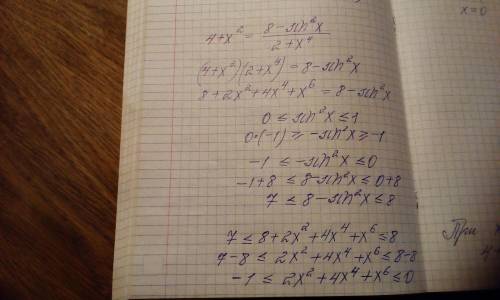 4+x² = (8-sin²x)/(2+x⁴)
(4+x²)(2+x⁴)=8-sin²x
8+2x²+4x⁴+x⁶=8-sin²x
0 ≤ sin²x ≤ 1
0·(-1) ≥ -sin²x ≥ -1
-1 ≤ -sin²x ≤ 0
-1+8 ≤ 8-sin²x ≤ 0+8
7 ≤ 8-sin²x ≤ 8
7 ≤ 8+2x²+4x⁴+x⁶ ≤ 8
7-8 ≤ 2x²+4x⁴+x⁶ ≤ 8-8
-1 ≤ 2x²+4x⁴+x⁶ ≤ 0
x=0
При